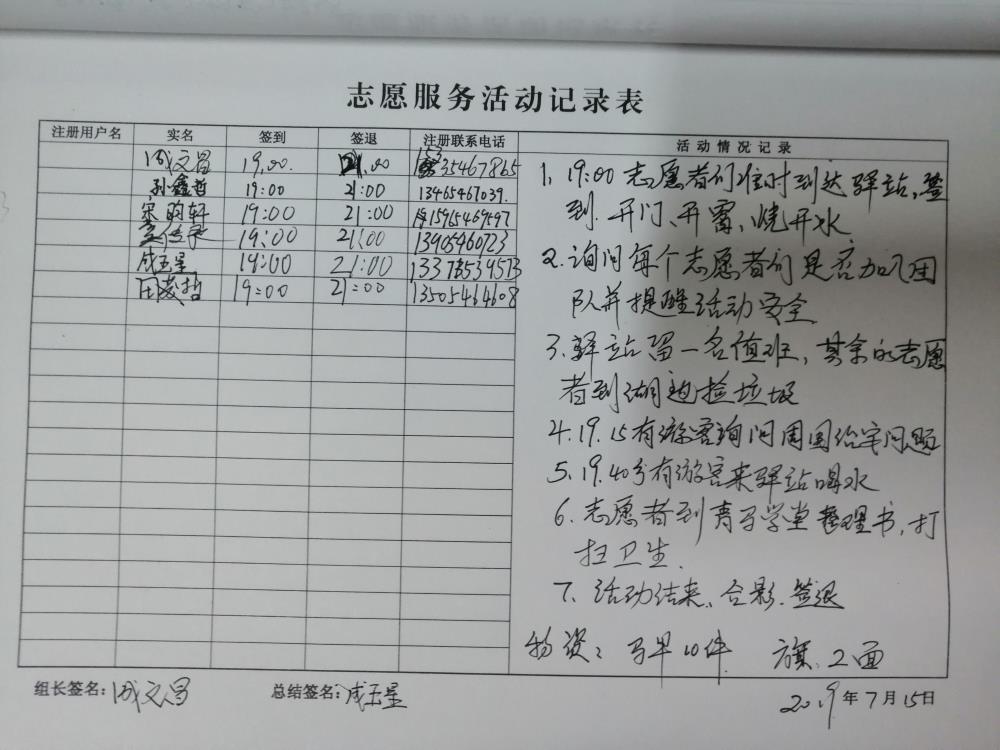 志愿服务活动记录表
注册用户名 实名 签到 签退 注册联系电话 活动情况记录
成文昌 19:00 21:00 15335467865
孙鑫哲 19:00 21:00 13465467039.
宋昀轩 19:00 21:00 15915469597
19:00 21:00 13905460723
成玉星 19:00 21:00
19:00 21:00 13505464608
1、19:00志愿者们准时到达驿站,签
到.开门、开窗、烧开水
2.询问每个志愿者们是否加入团
队并提醒活动安全
3、驿站留一名值班,其余的志愿
者到湖边捡垃圾
4.19.15有游客询问周围
问题
5、19.40分有游客来驿站喝水
6.志愿者到青马学堂整理书,打
扫卫生.
7、活动结束、合影.签退
物资:马甲10件 旗.2面
组长签名:成文昌 总结签名:成玉星 2019年7月15日